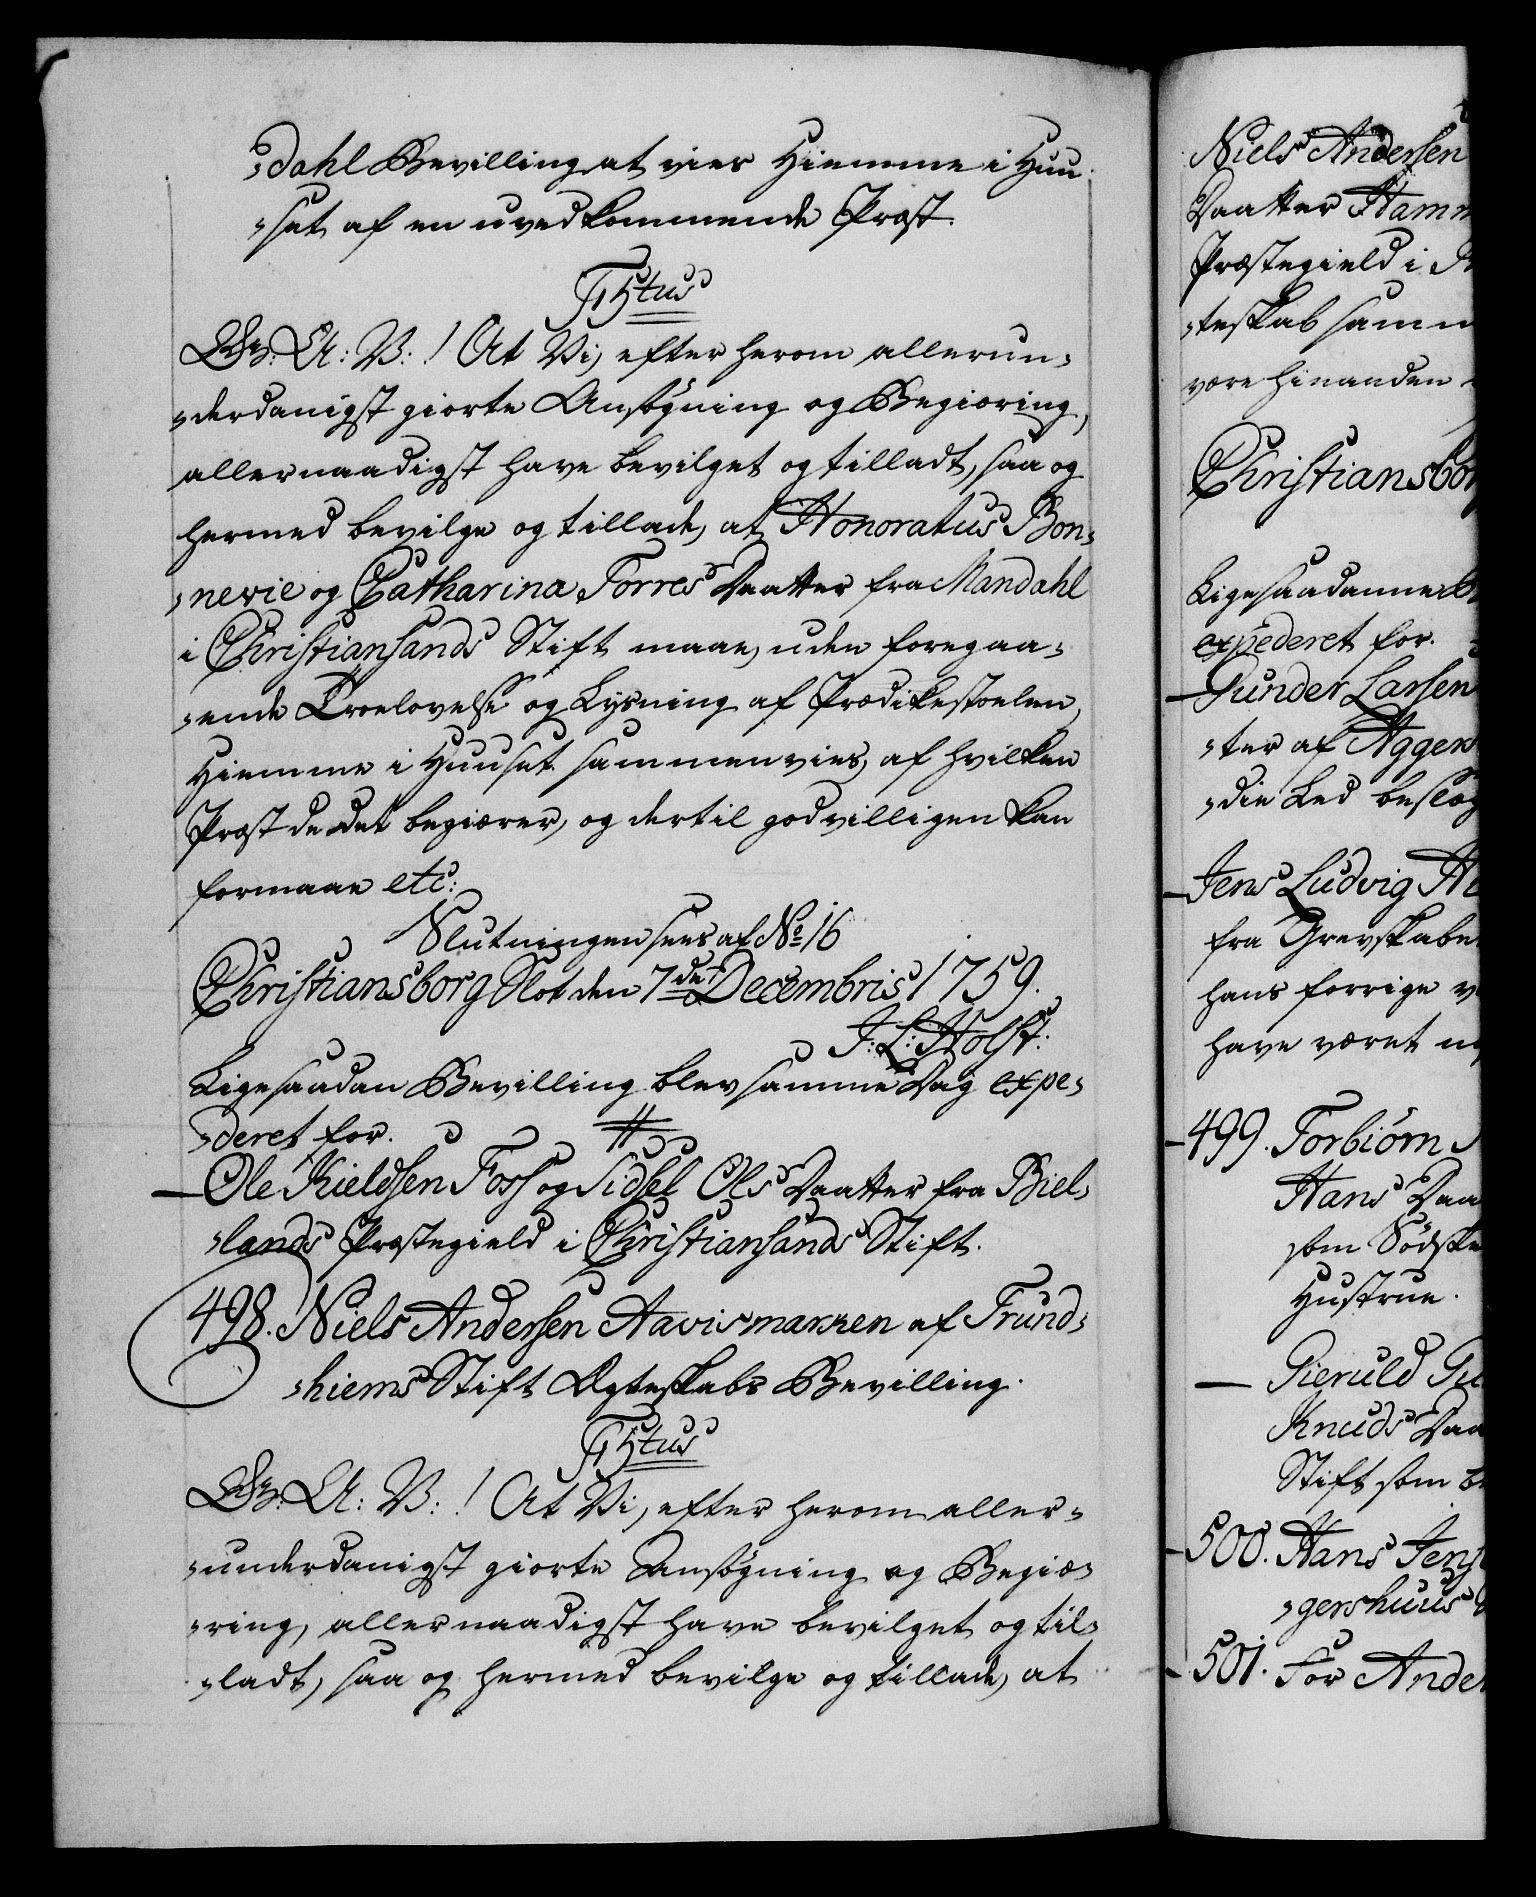 „dahl Bevilling at vies Hiemme i Huu„
„set af en uvedkommende Præst.
Titus
Gr: A: V: ! At Vi, efter herom allerun„
„derdanigst giorte Ansøgning og Begiæring,
allernaadigst have bevilget og tilladt, saa og
hermed bevilge og tillade, at Honoratus Bon„
„nevie og Catharina Torres Daatter fra Mandahl
i Christiansands Stift maae, uden foregaa„
„ende Troelovelse og Lysning af Prædikestoelen,
Hiemme i Huuset sammenvies, af hvilken
Præst de det begiærer, og dertil godvilligen kan
formaae etc:
Slutningen sees af No 16
Christiansborg Slot den 7de Decembris 1759.
J: L: Holst:
Ligesaadan Bevilling blev samme Dag expe„
„deret for.
— Ole Kieldsen Foss og Sidsel Ols Daatter fra Biel„
„lands Præstegield i Christiansands Stift.
498. Niels Andersen Aavismarken af Trund„
„hiems Stift Ægteskabs Bevilling.
Titus
Gr: A: V: ! At Vi, efter herom aller„
„underdanigst giorte Ansøgning og Begiæ„
„ring, allernaadigst have bevilget og til„
„ladt, saa og hermed bevilge og tillade, at
Niels Andersen
Daatter Hamm
Præstegield i
„teskab samm
være hinanden
Christiansbor
Ligesaadanne
expederet for.
— Gunder Larsen
„ter af Agger
„die Led beslæg
— Jens Ludvig
fra Grevskabe
hans forrige
have været
— 499. Torbiørn
Hans Daa
som Sødske
Hustrue.
— Gieruld
Knuds Daa
Stift som
— 500. Hans Jens
„gershuus
— 501. For Ander